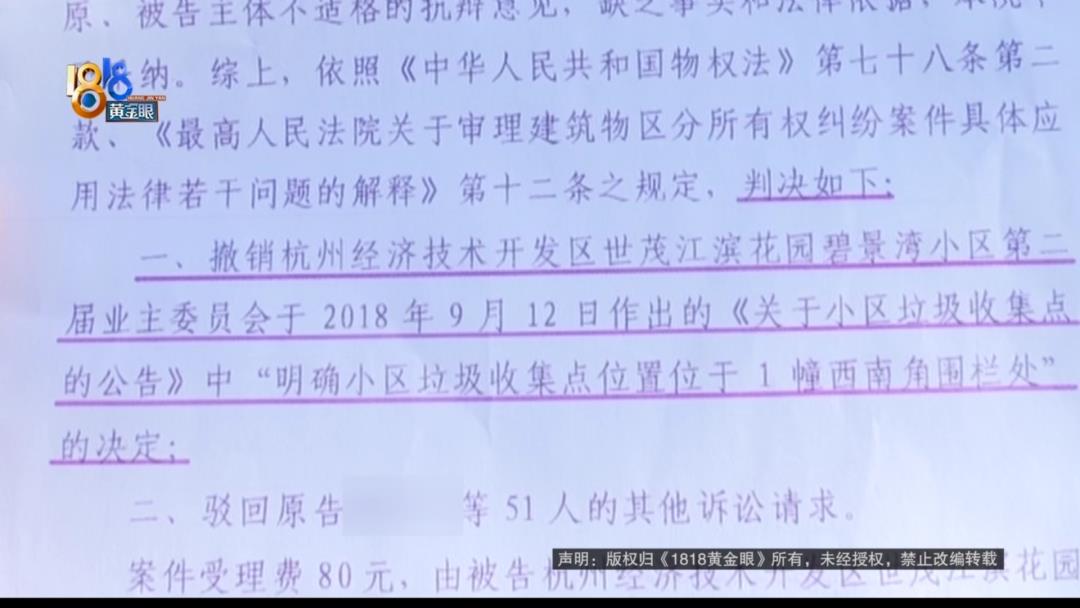 原、被告主体不适格的抗辩意见，缺乏事实和法律依据，本院不
纳。综上，依照《中华人民共和国物权法》第七十八条第二
1818
黄金眼
款、《最高人民法院关于审理建筑物区分所有权纠纷案件具体应
用法律若干问题的解释》第十二条之规定，判决如下：
一、撤销杭州经济技术开发区世茂江滨花园碧景湾小区第二
届业主委员会于 2018 年 9 月 12 日作出的《关于小区垃圾收集点
的公告》中“明确小区垃圾收集点位置位于 1 幢西南角围栏处”
的决定；
二、驳回原告 等 51 人的其他诉讼请求。
声明：版权归《1818黄金眼》所有，未经授权，禁止改编转载
案件受理费 80 元，由被告杭州经济技术开发区世茂江滨花园